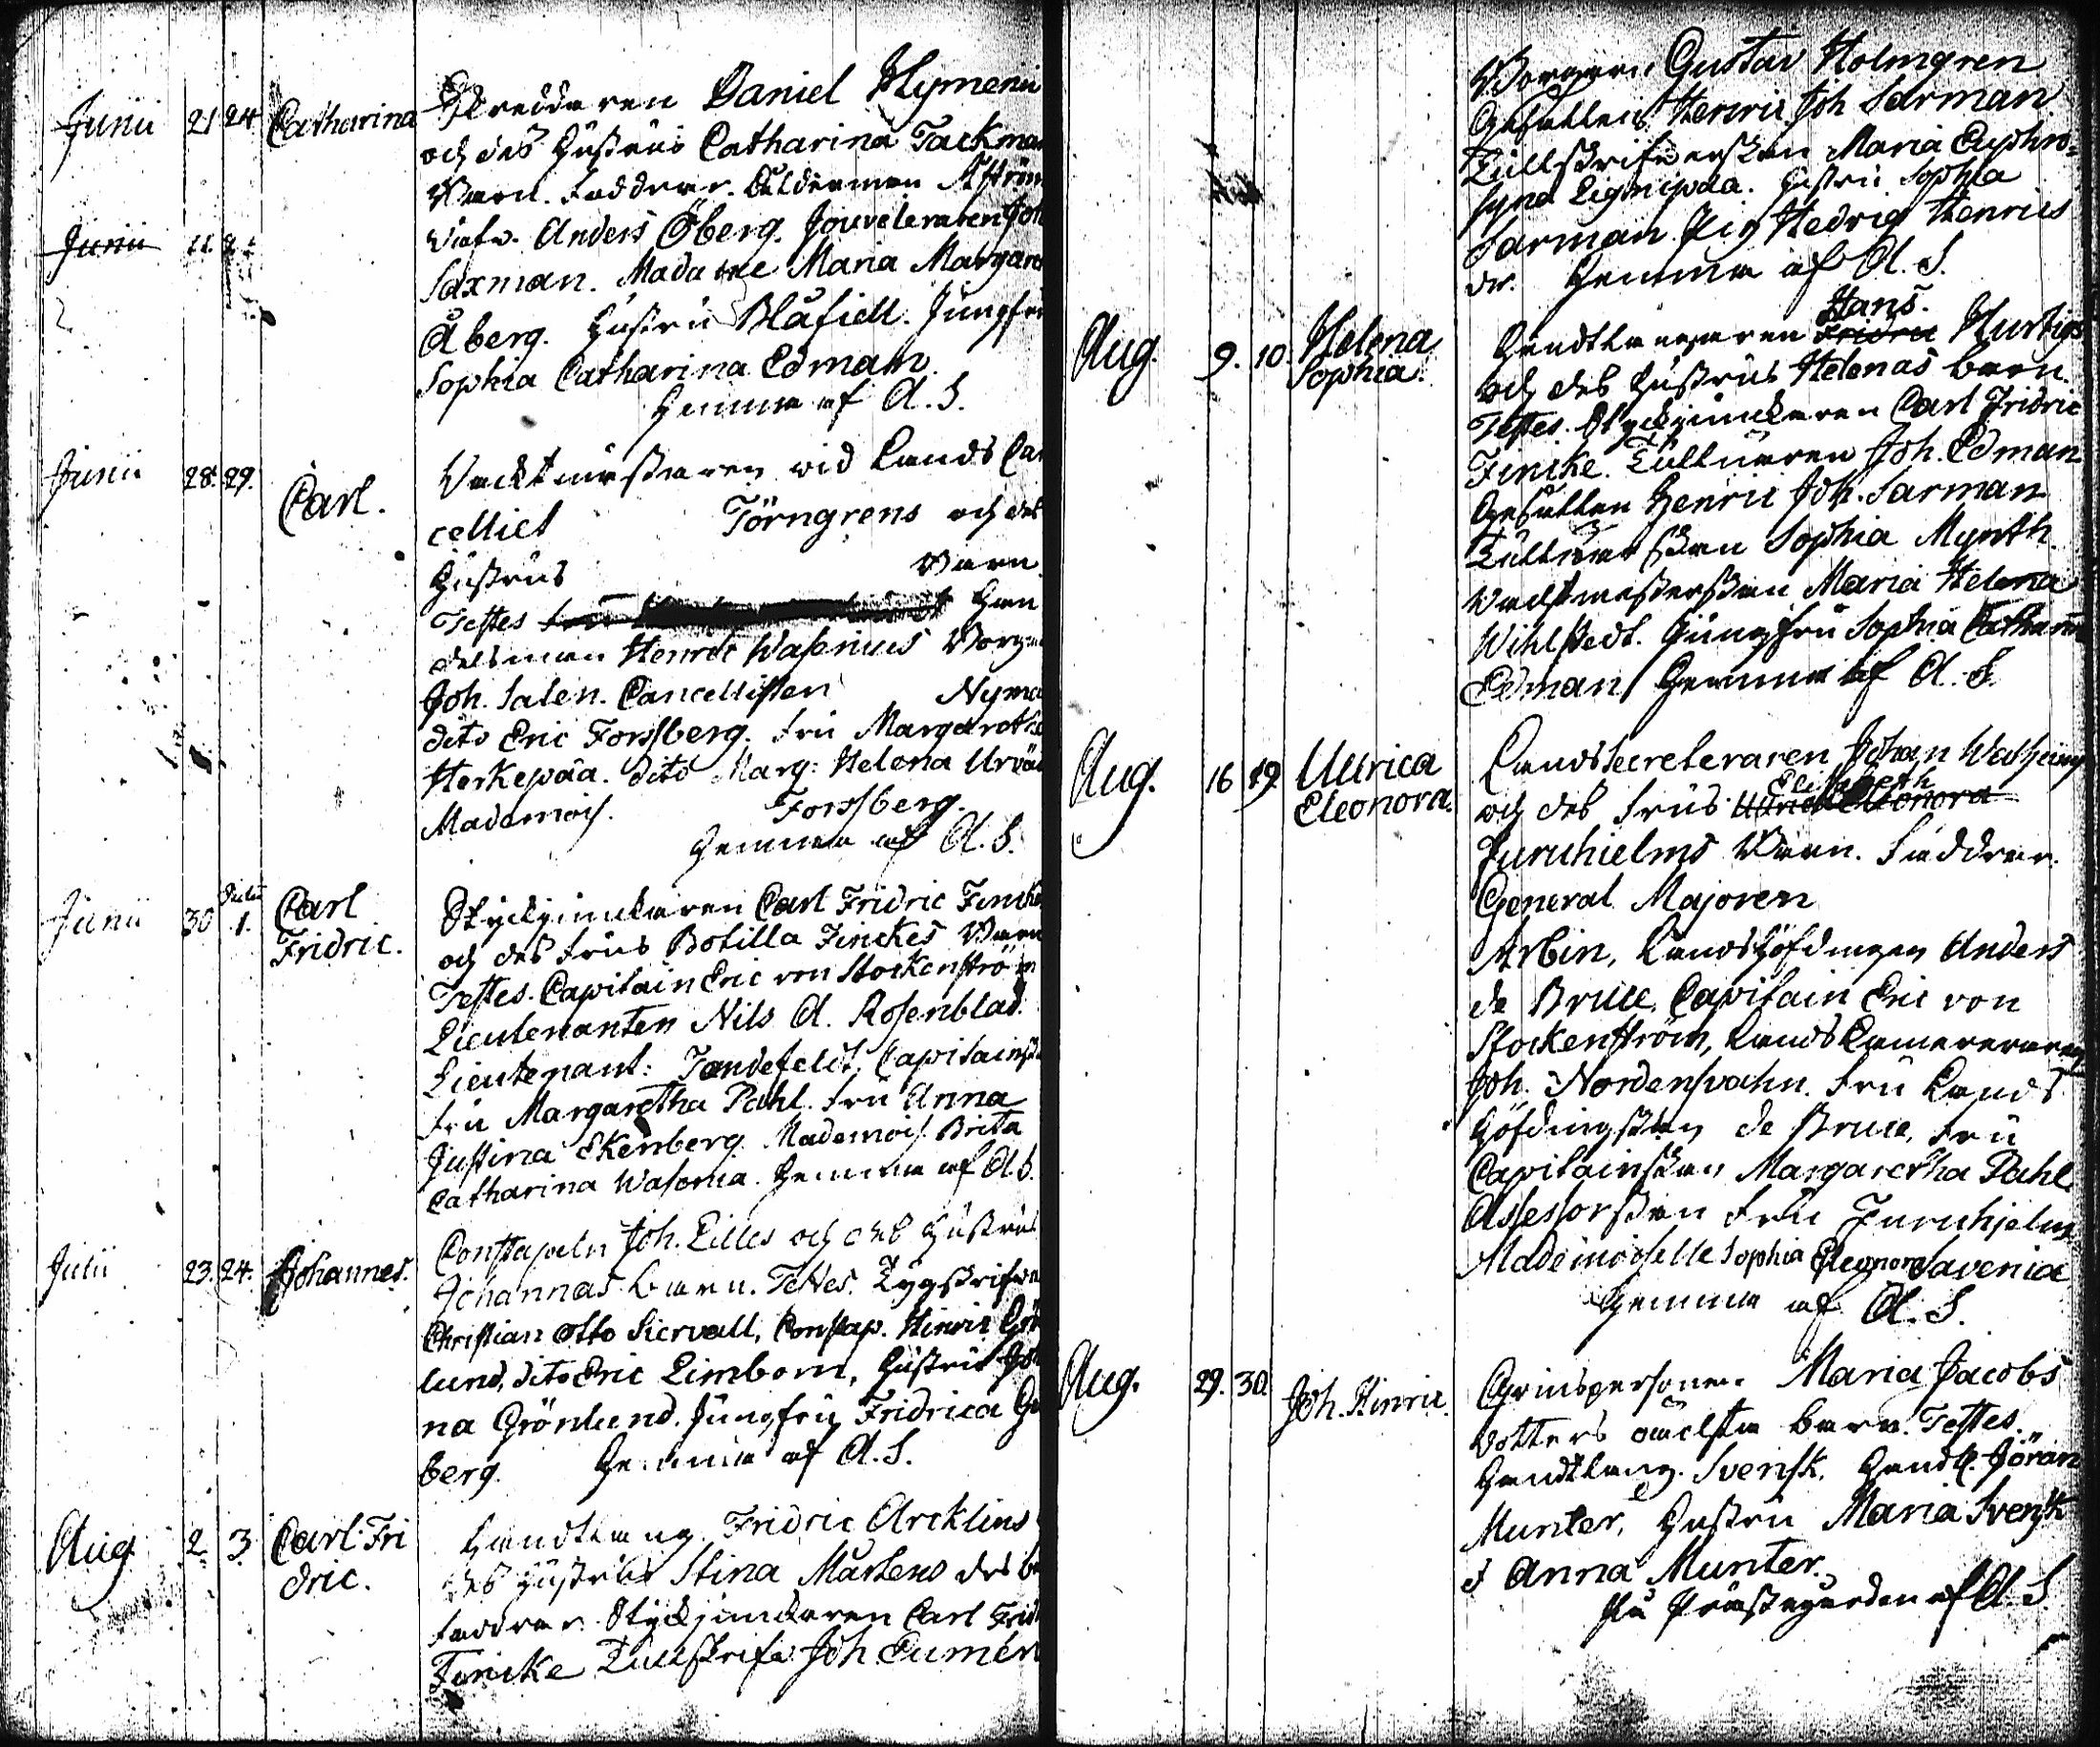 Junii 21 24 Catharina Skreddaren Daniel Hymenii
och des hustrus Catharina Tackman
Barn. Faddrar. Ålderman Åström
Anders Öberg. Jouveleraren Joh
Saxman. Madame Maria Margaret
Junii
Åberg. Hustru Blåfiell. Jungfru
Sophia Catharina Edman.
Hemma af A. S.
Junii 28. 29. Carl. Vacktmästaren wid Lands Can
celliet Törngrens och des
Hustrus Barn.
Testes Han
delsman Henric Wasenius Borga
Joh. Salen. Cancellisten Nyma
dito Eric Forssberg. Fru Margaretha
Herkepæa. dito Marg: Helena
Mademois. Forssberg.
Hemma af A. S.
Junii 30 Julii 1. Carl Fridric. Styckjunkaren Carl Fridric Fincke
och des Frus Botilla Finckes Barn
Testes. Capitain Eric von Stockenström
Lieutenanten Nils A. Rosenblad.
Lieutenant: Tandefeldt. Capitainsk
Fru Margaretha Pahl. Fru Anna
Justina Ekenberg Mademois. Brita
Catharina Wasenia. Hemma af A. S.
Julii 23. 24. Johannes. Constapeln Joh. Lilles och des Hustrus
Johannas barn. Testes. Tygskrifwa
Christian Otto Siervall, Constap. Hinric Grön
lund, dito Eric Limbom, Hustru Joh
na Grönlund. Jungfru Fridrica
berg. Hemma af A. S.
Aug 2 3 Carl Fri
dric. Handtlang. Fridric Arcklins
des hustrus Stina Mårtens des
Faddrar. Styckjunkaren Carl Frid
Fincke Tullskrifv. Joh Cumén
Borgaren Gustav Holmgren
Gesällen Henric Joh Sarman
Tullskrifwerskan Maria Euphro=
syna Lignipæa. Hustru Sophia
Sarman. Pig Hedvig Henrics
dr. Hemma af A. S.
Aug. 9. 10. Helena Sophia. Handtlangaren Hans. Fridric Hurtigs
och des hustrus Helenas barn.
Testes. Styckjunckaren Carl Fridric
Fincke. Tullnären Joh. Edman
Gesällen Henric Joh. Sarman
Tullnerskan Sophia Mynth.
Vacktmesterskan Maria Helena
Wihlstedt. Jungfru Sophia Catharina
Edman Hemma af A. S.
Aug. 16 19 Ullrica Eleonora. Landssecreteraren Johan
och des Frus Elisabeth Ullrica Eleonora
Juruhielms Barn. Faddrar.
General Majoren
Arbin, Landshöfdingen Anders
de Bruce, Capitain Eric von
Stockenström, Lands Camereraren
Joh. Nordensvahn. Fru Lands
Höfdingskan de Bruce, Fru
Capitainskan Margaretha Pahl.
Assessorskan Fru Furuhjelm
Mademoiselle Sophia Eleonora Savenia
Hemma af A. S.
Aug. 29. 30. Joh. Hinric. Qvinspersonen Maria Jacobs
dotters oäckta barn. Testes.
Handtlang. Svensk. Handtl. Jöran
Munter, Hustru Maria Svensk
d Anna Munter.
På Prästegården af A. S.